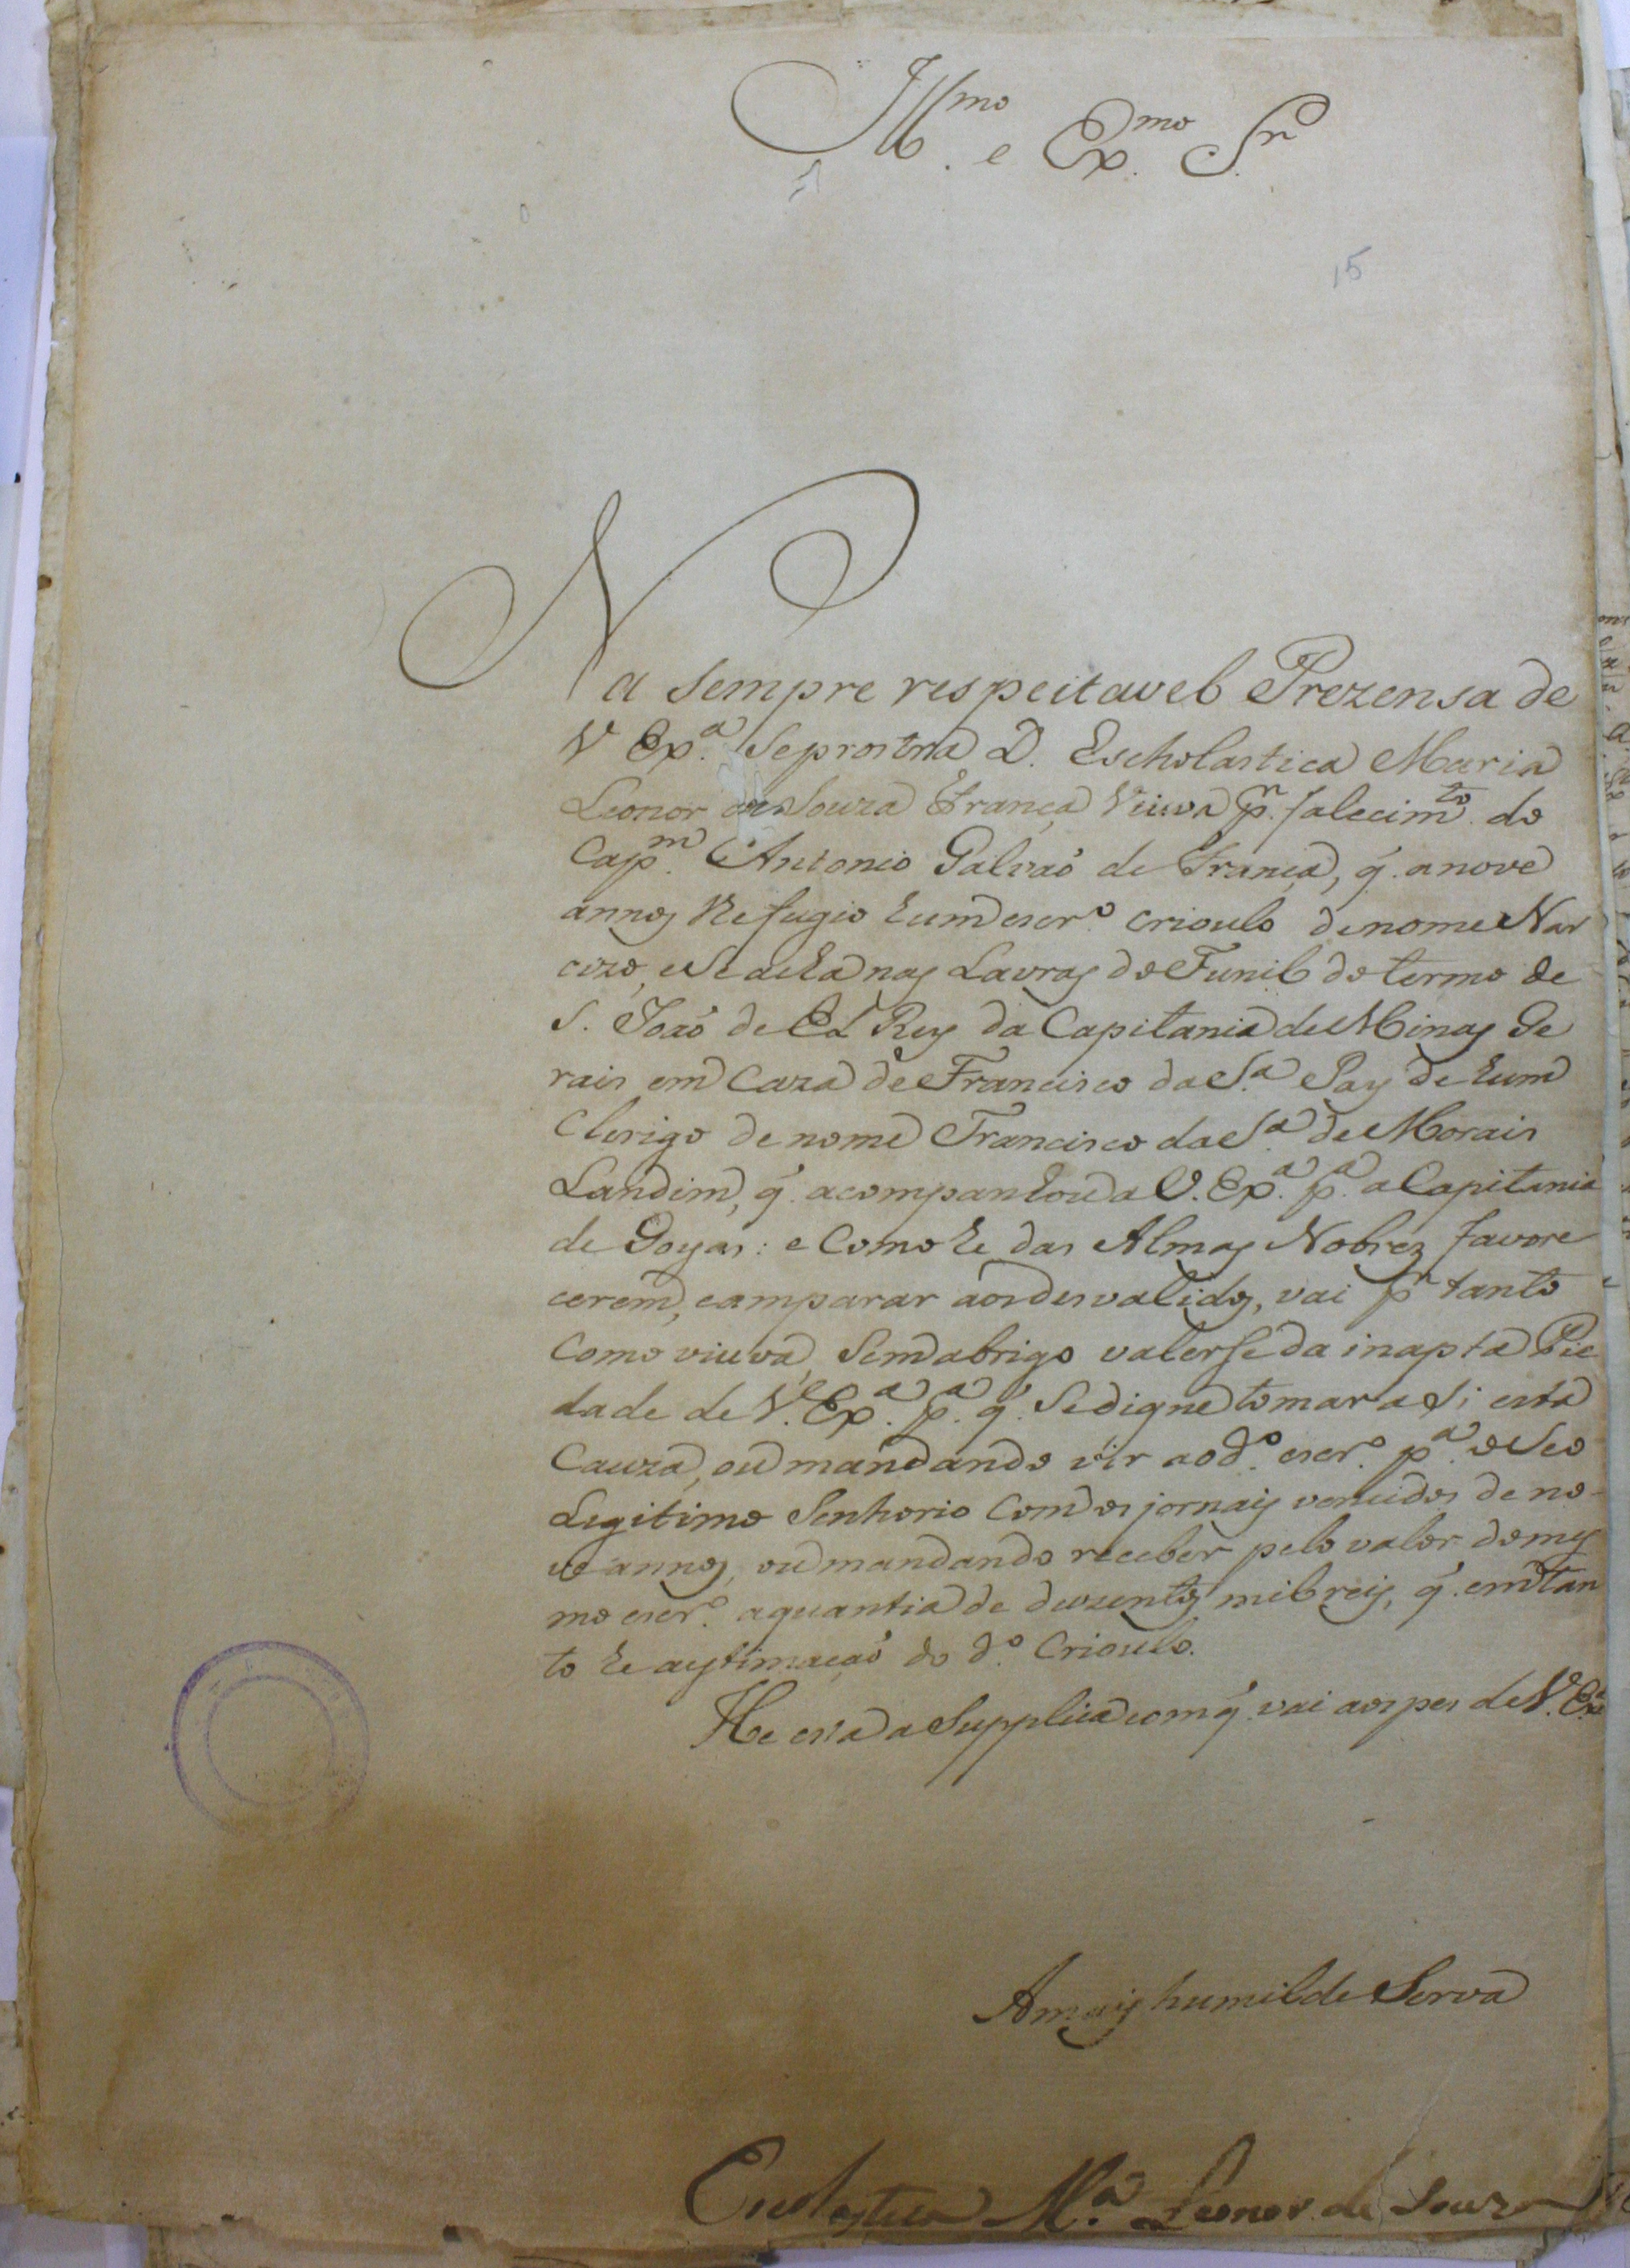 Ill.mo e Ex.mo Sr.
15
Na sempre respeitavel Prezensa de
V Ex.a Seprostra D. Escholastica Maria
Leonor de Souza França Viuva p.r falecim.to do
Cap.m Antonio Galvaõ de França, q̃. a nove
annos Refugio hum escr.o crioulo de nome Nar
cizo, e Se acha nas Lavras do Funil do termo de
S. Joaõ de El Rey da Capitania de Minas Ge
rais em Caza de Francisco da S.a Pay de hum
Clerigo de nome Francisco da S.a de Morais
Landim, q̃. acompanhou a V. Ex.a p.a a Capitania
de Goyas: e Como he das Almas Nobres favore
cerem, e amparar aos desvalidos, vai p.r tanto
Como viuva, Sem abrigo valerse da inapta Pie
dade de V. Ex.a p.a q̃. Se digne tomar a Si esta
Cauza, ou mandando vir ao d.o escr.o p.a o Seo
Legitimo Senhorio Com os jornais vencidos de no-
ve annos, ou mandando receber pelo valor do mes
mo escr.o a quantia de duzentos mil reis, q̃. em tan
to he a estimaçaõ do d.o Crioulo.
He esta a Supplica com q̃. vai aos pes de V. Ex.a
A mais humilde Serva
Escolastica M.a Leonor de Souza